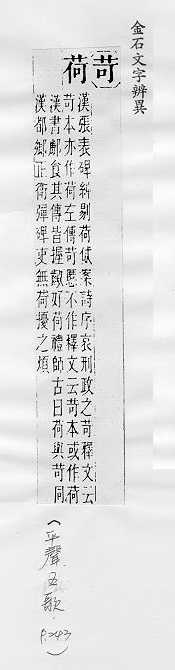 金石文字辨異
苛荷
漢張表碑糾剔荷慝案詩序哀刑政之苛釋文云
苛本亦作荷左傳苛慝不作釋文云苛本或作荷
漢書酈食其傳皆握齱好荷禮師古曰荷與苛同
漢都鄉正衛彈碑吏無荷擾之煩
(平聲五歌 P.243)